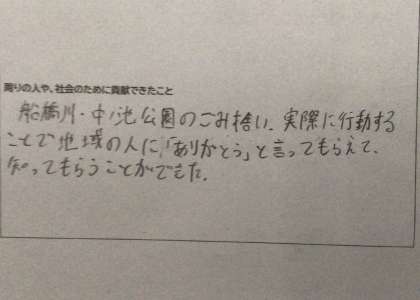 周りの人や、社会のために貢献できたこと
船橋川・中ノ池公園のごみ拾い。実際に行動する
ことで地域の人に「ありがとう」と言ってもらえて、
知ってもらうことができた。